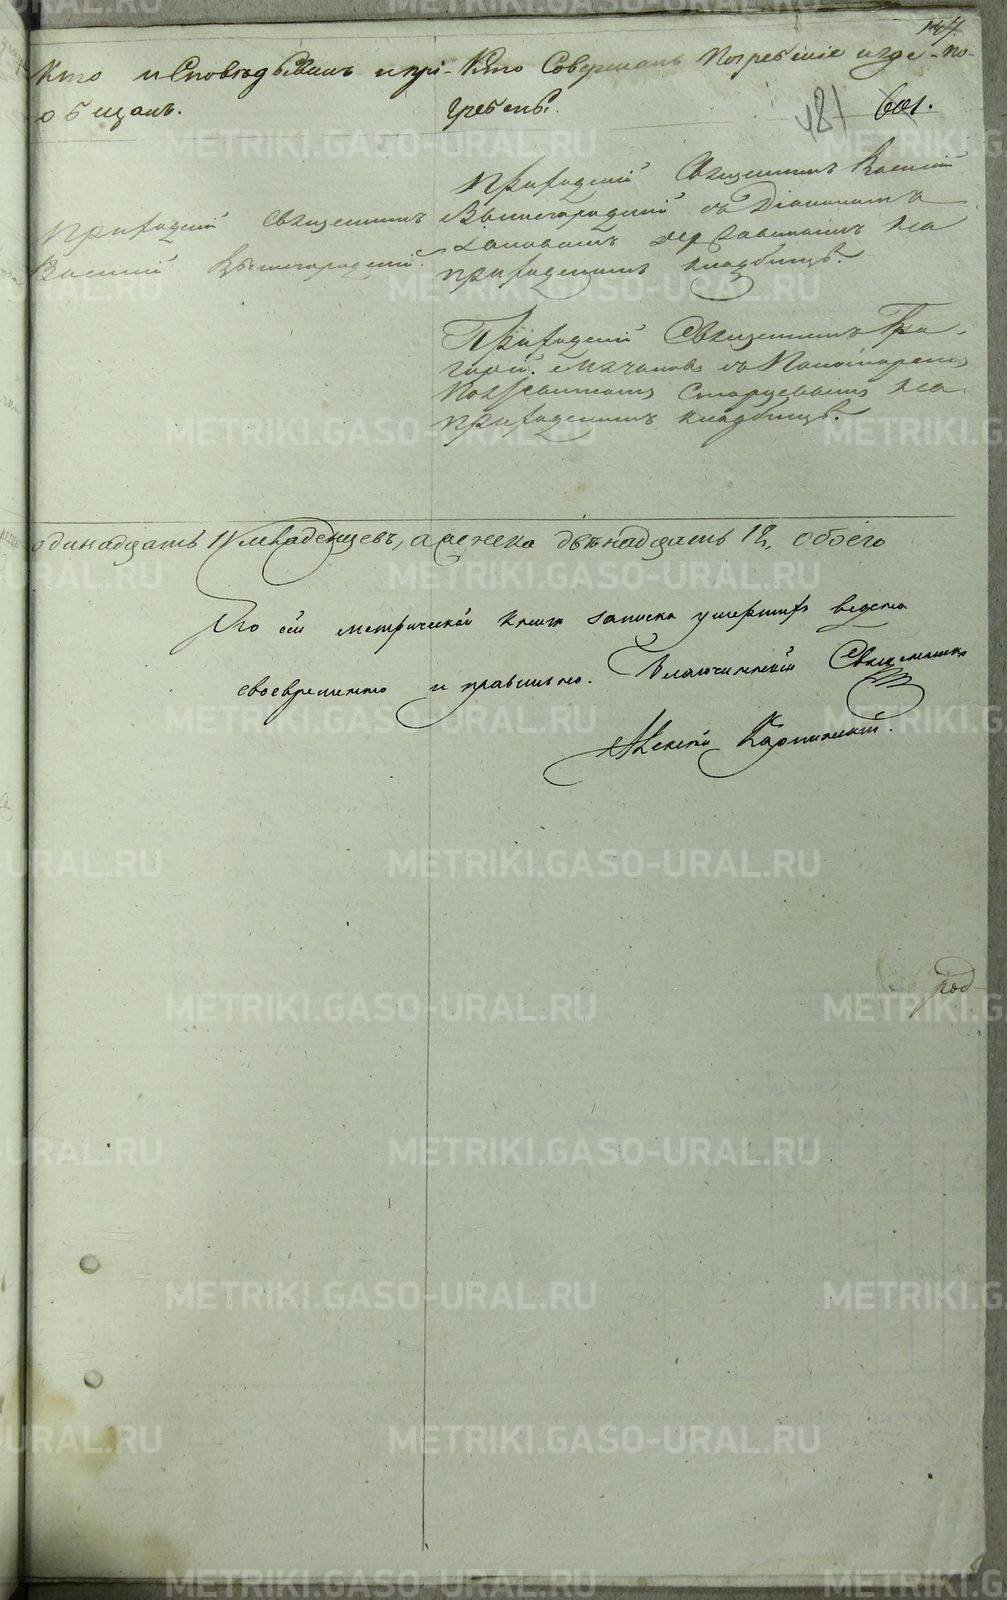 147.
Кто исповѣдывалъ и прі-
общалъ.
Кто совершалъ погребеніе и гдѣ по-
гребенъ.
481
601.
Приходскій Священникъ
Василій Вышегородскій.
Приходскій Священникъ Василій
Вышегородскій съ Діакономъ
на
приходскомъ кладбищѣ.
Приходскій Священникъ Гри-
горій Мячковъ съ Пономаремъ
Старцевымъ на
приходскомъ кладбищѣ.
одинадцать 11 младенцевъ, а женска двѣнадцать 12, обоего
По сей метрической книгѣ записка умершихъ ведена
своевременно и правильно. Благочинный Священникъ
Алексей Карпинскій.
род
METRIKI.GASO-URAL.RU